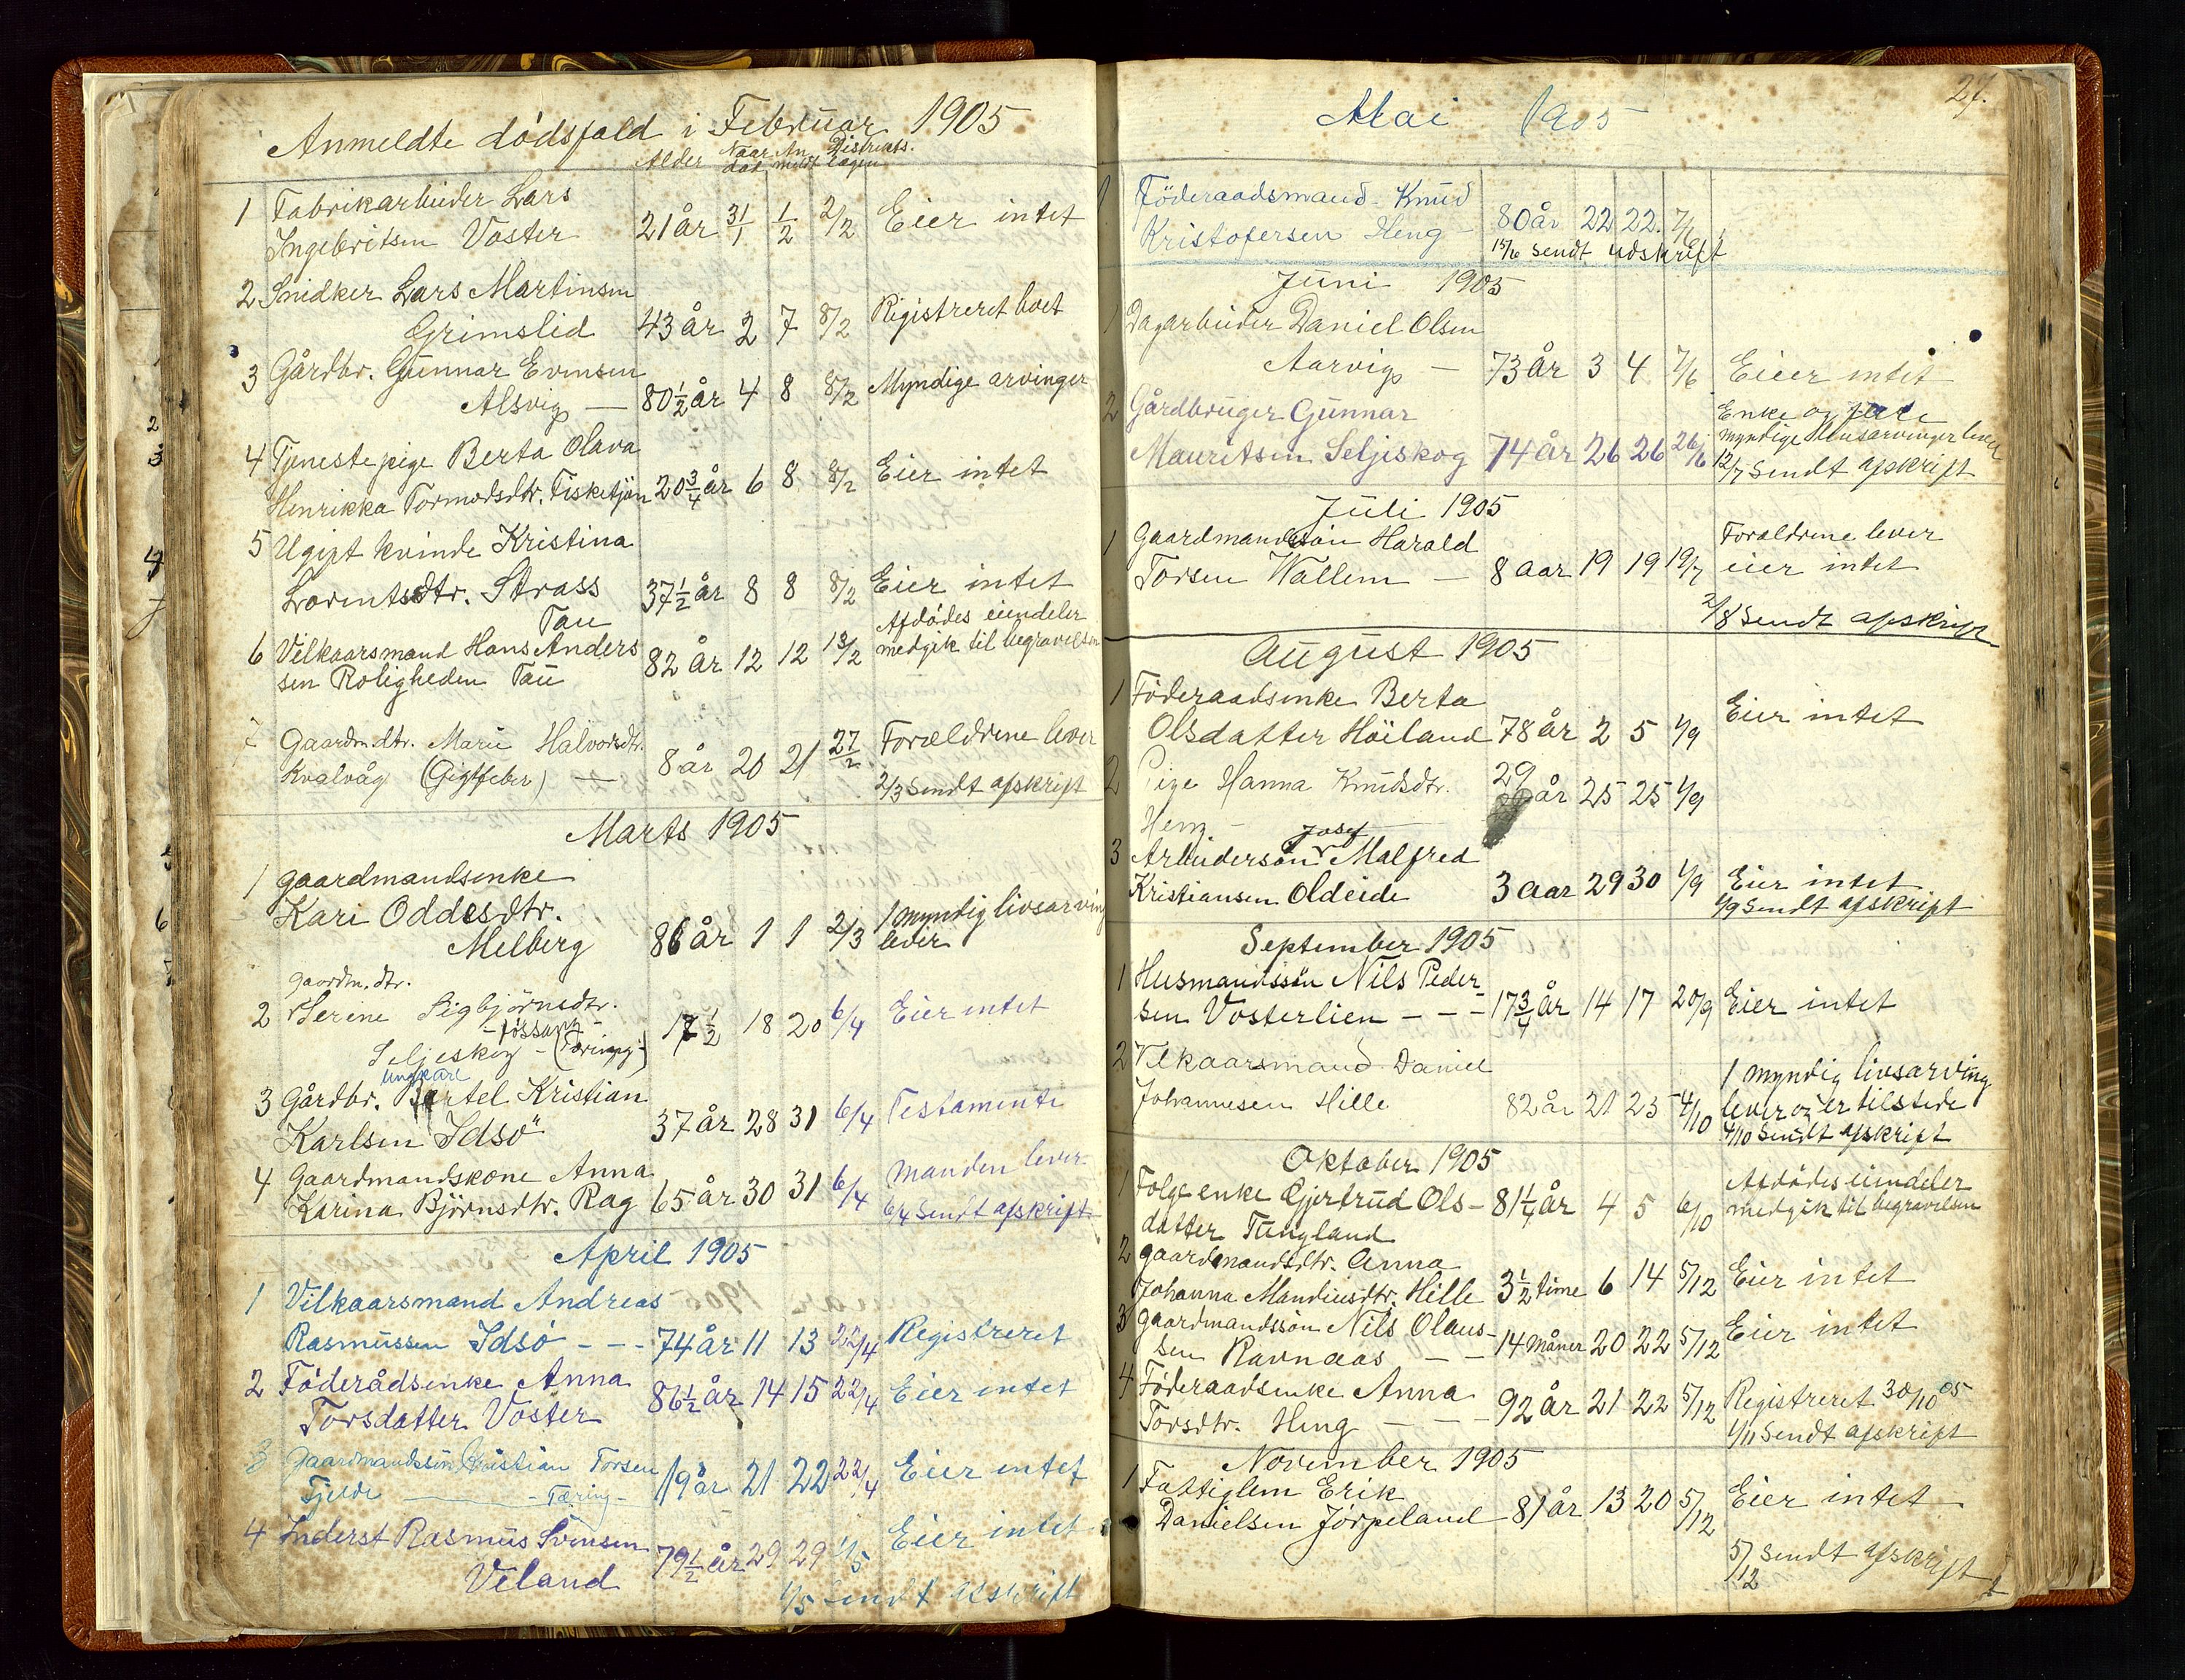 Anmeldte dödsfald i Februar 1905
Alder Naar död An meldt Distrikts. lagen
1 Fabrikarbeider Lars
Ingebritsen Voster 21 år 31/1 1/2 2/2 Eier intet
2 Snidker Lars Martinsen
Grimslid 43 år 2 7 8/2 Rigistreret boet
3 Gårdbr. Gunnar Evensen
Alsvig — 80½ år 4 8 8/2 Myndige arvinger
4 Tjenestepige Berta Olava
Henrikka Tormodsdtr. Fisketjön 20¾ år 6 8 8/2 Eier intet
5 Ugift kvinde Kristina
Lorentsdtr. Strass 37½ år 8 8 8/2 Eier intet
Tau
6 Vilkaarsmand Hans Anders
sen Roligheden Tau 82 år 12 12 13/2 Afdödes eiendeler
medgik til begravelsen
7 Gaardm.dtr. Marie Halvorsdtr.
Kvalvåg (Gigtfeber) — 8 år 20 21 27/2 Forældrene lever
2/3 Sendt afskrift
Marts 1905
1 gaardmandsenke
Kari Oddesdtr.
Melberg 86 år 1 1 2/3 1 myndig livsarving
lever
gaardm.dtr.
2 Serine Sigbjörnsdtr.
- Fössang -
Seljeskog - (Tæring) 17½ 18 20 6/4 Eier intet
ungkarl
3 Gårdbr. Bertel Kristian
Karlsen Idsö 37 år 28 31 6/4 Testamente
4 Gaardmandskone Anna
Karina Björnsdtr. Rag 65 år 30 31 6/4 Manden lever
6/4 Sendt afskrift
April 1905
1 Vilkaarsmand Andreas
Rasmussen Idsö - - - 74 år 11 13 22/4 Registreret
2 Föderådsenke Anna
Torsdatter Voster 86½ år 14 15 22/4 Eier intet
3 Gaardmandssön Kristian Torsen
Tjelde — - Tæring - 19 år 21 22 22/4 Eier intet
4 Inderst Rasmus Svensen
Veland 79½ år 29 29 1/5 Eier intet
1/5 Sendt afskrift
27.
Mai 1905
1 Föderaadsmand Knud
Kristofersen Heng - 80 år 22 22. 7/6
15/6 sendt udskrift
Juni 1905
1 Dagarbeider Daniel Olsen
Aarvig — 73 år 3 4 7/6 Eier intet
2 Gårdbruger Gunnar
Mauritsen Seljiskog 74 år 26 26 26/6 Enke og
myndige livsarvinger lever
12/7 Sendt afskrift
Juli 1905
1 Gaardmandssön Harald
Torsen Wallem — 8 aar 19 19 19/7 Forældrene lever
eier intet
2/8 Sendt afskrift
August 1905
1 Föderaadsenke Berta
Olsdatter Höiland 78 år 2 5 1/9 Eier intet
2 Pige Hanna Knudsdtr. 29
Heng - år 25 25 1/9
Josef
3 Arbeidersön Malfred
Kristiansen Oldeide 3 aar 29 30 1/9 Eier intet
1/9 Sendt afskrift
September 1905
1 Husmandssön Nils Peder-
sen Vosterlien - - - 17¾ år 14 17 20/9 Eier intet
2 Vilkaarsmand Daniel
Johannesen Hille 82 år 21 25 4/10 1 myndig livsarving
lever og er tilstede
4/10 Sendt afskrift
Oktober 1905
1 Folge enke Gjertrud Ols-
datter Tungland 81¼ år 4 5 6/10 Afdödes eiendeler
medgik til begravelsen
2 gaardmandsdtr. Anna
Johanna Mandiusdtr. Hille 3½ time 6 14 5/12 Eier intet
3 gaardmandssön Nils Olaus-
sen Ravnaas — — 14 måner 20 22 5/12 Eier intet
4 Föderaadsenke Anna
Torsdtr. Heng — — - 92 år 21 22 5/12 Registreret 30/10 05
1/11 Sendt afskrift
November 1905
1 Fattiglem Erik
Danielsen Jörpeland 81 år 13 20 5/12 Eier intet
5/12 Sendt afskrift